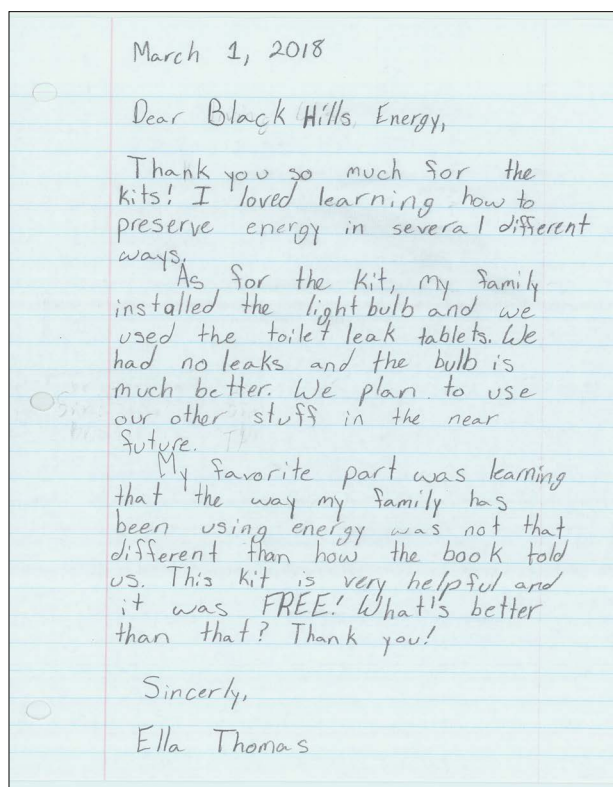 March 1, 2018
Dear Black Hills Energy,
Thank you so much for the
kits! I loved learning how to
preserve energy in several different
ways.
As for the kit, my family
installed the light bulb and we
used the toilet leak tablets. We
had no leaks and the bulb is
much better. We plan to use
our other stuff in the near
future.
My favorite part was learning
that the way my family has
been using energy was not that
different than how the book told
us. This kit is very helpful and
it was FREE! What's better
than that? Thank you!
Sincerly,
Ella Thomas